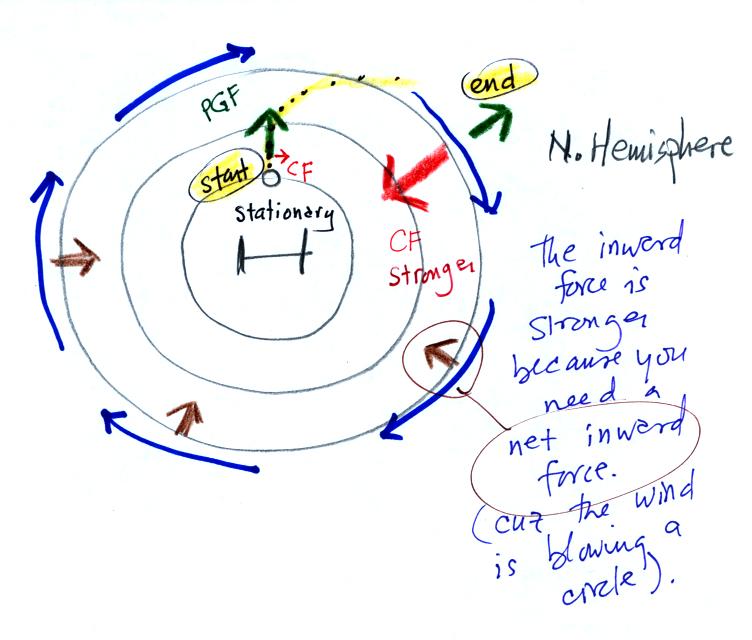 end
PGF
N. Hemisphere
start
CF
stationary
H
CF
Stronger
the inward
force is
stronger
because you
need a
net inward
force.
(cuz the wind
is blowing a
circle).